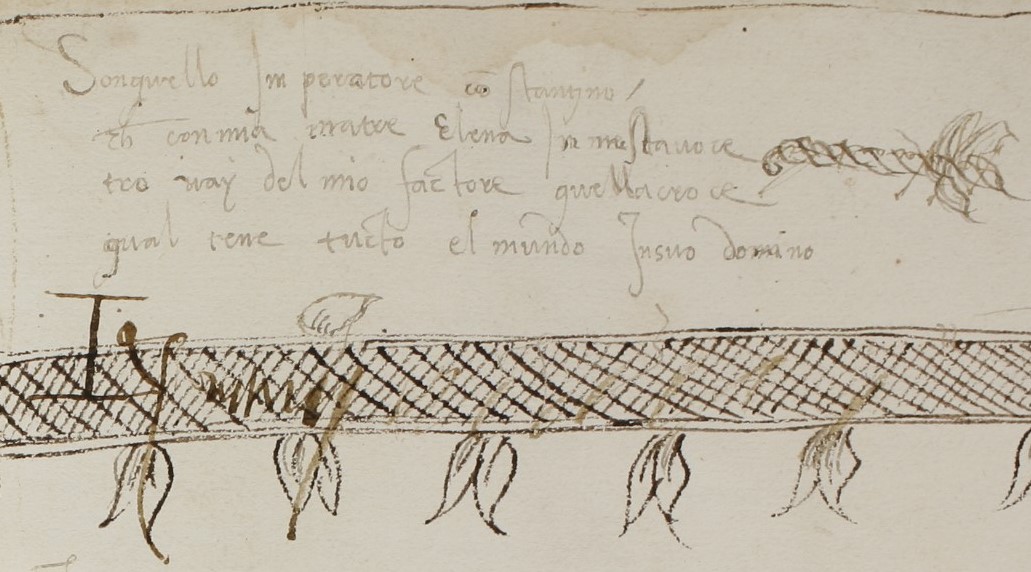 Sonquello Imperatore cō stantino /
ch̄ con mia matre Elena In mestavore
tro vay del mio factore quella croce
qual tene tucto el mundo In suo domino